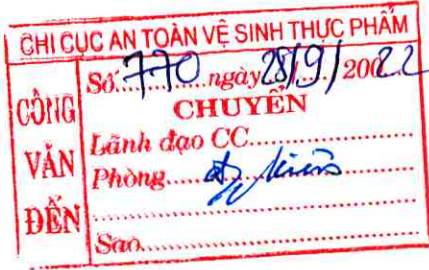 CHI CỤC AN TOÀN VỆ SINH THỰC PHẨM
CÔNG VĂN ĐẾN
Số: 770 ngày 28/9/2022
CHUYỂN
Lãnh đạo CC
Phòng
Sao